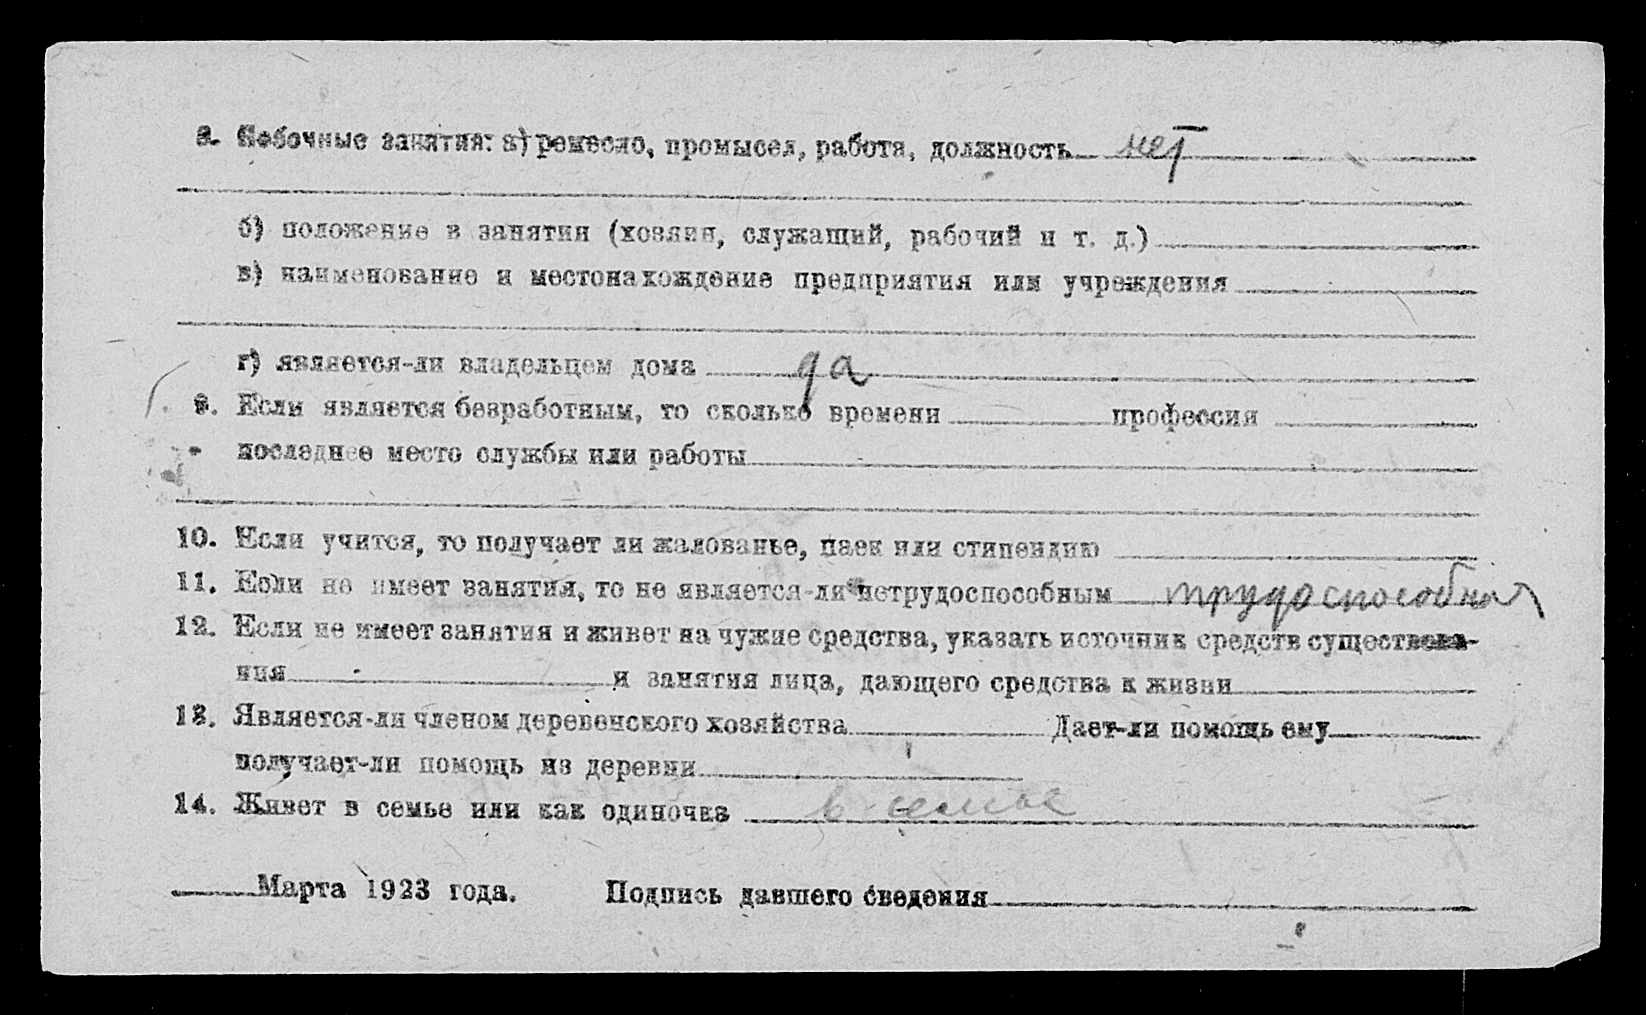 8. Побочные занятия: а) ремесло, промысел, работа, должность нет
б) положение в занятии (хозяин, служащий, рабочий и т. д.)
в) наименование и местонахождение предприятия или учреждения
г) является-ли владельцем дома да
9. Если является безработным, то сколько времени профессия
последнее место службы или работы
10. Если учится, то получает ли жалованье, паек или стипендию
11. Если не имеет занятия, то не является-ли нетрудоспособным трудоспособная
12. Если не имеет занятия и живет на чужие средства, указать источник средств существова-
ния и занятия лица, дающего средства к жизни
13. Является-ли членом деревенского хозяйства Дает-ли помощь ему
получает-ли помощь из деревни
14. Живет в семье или как одиночка в семье
Марта 1923 года. Подпись давшего сведения